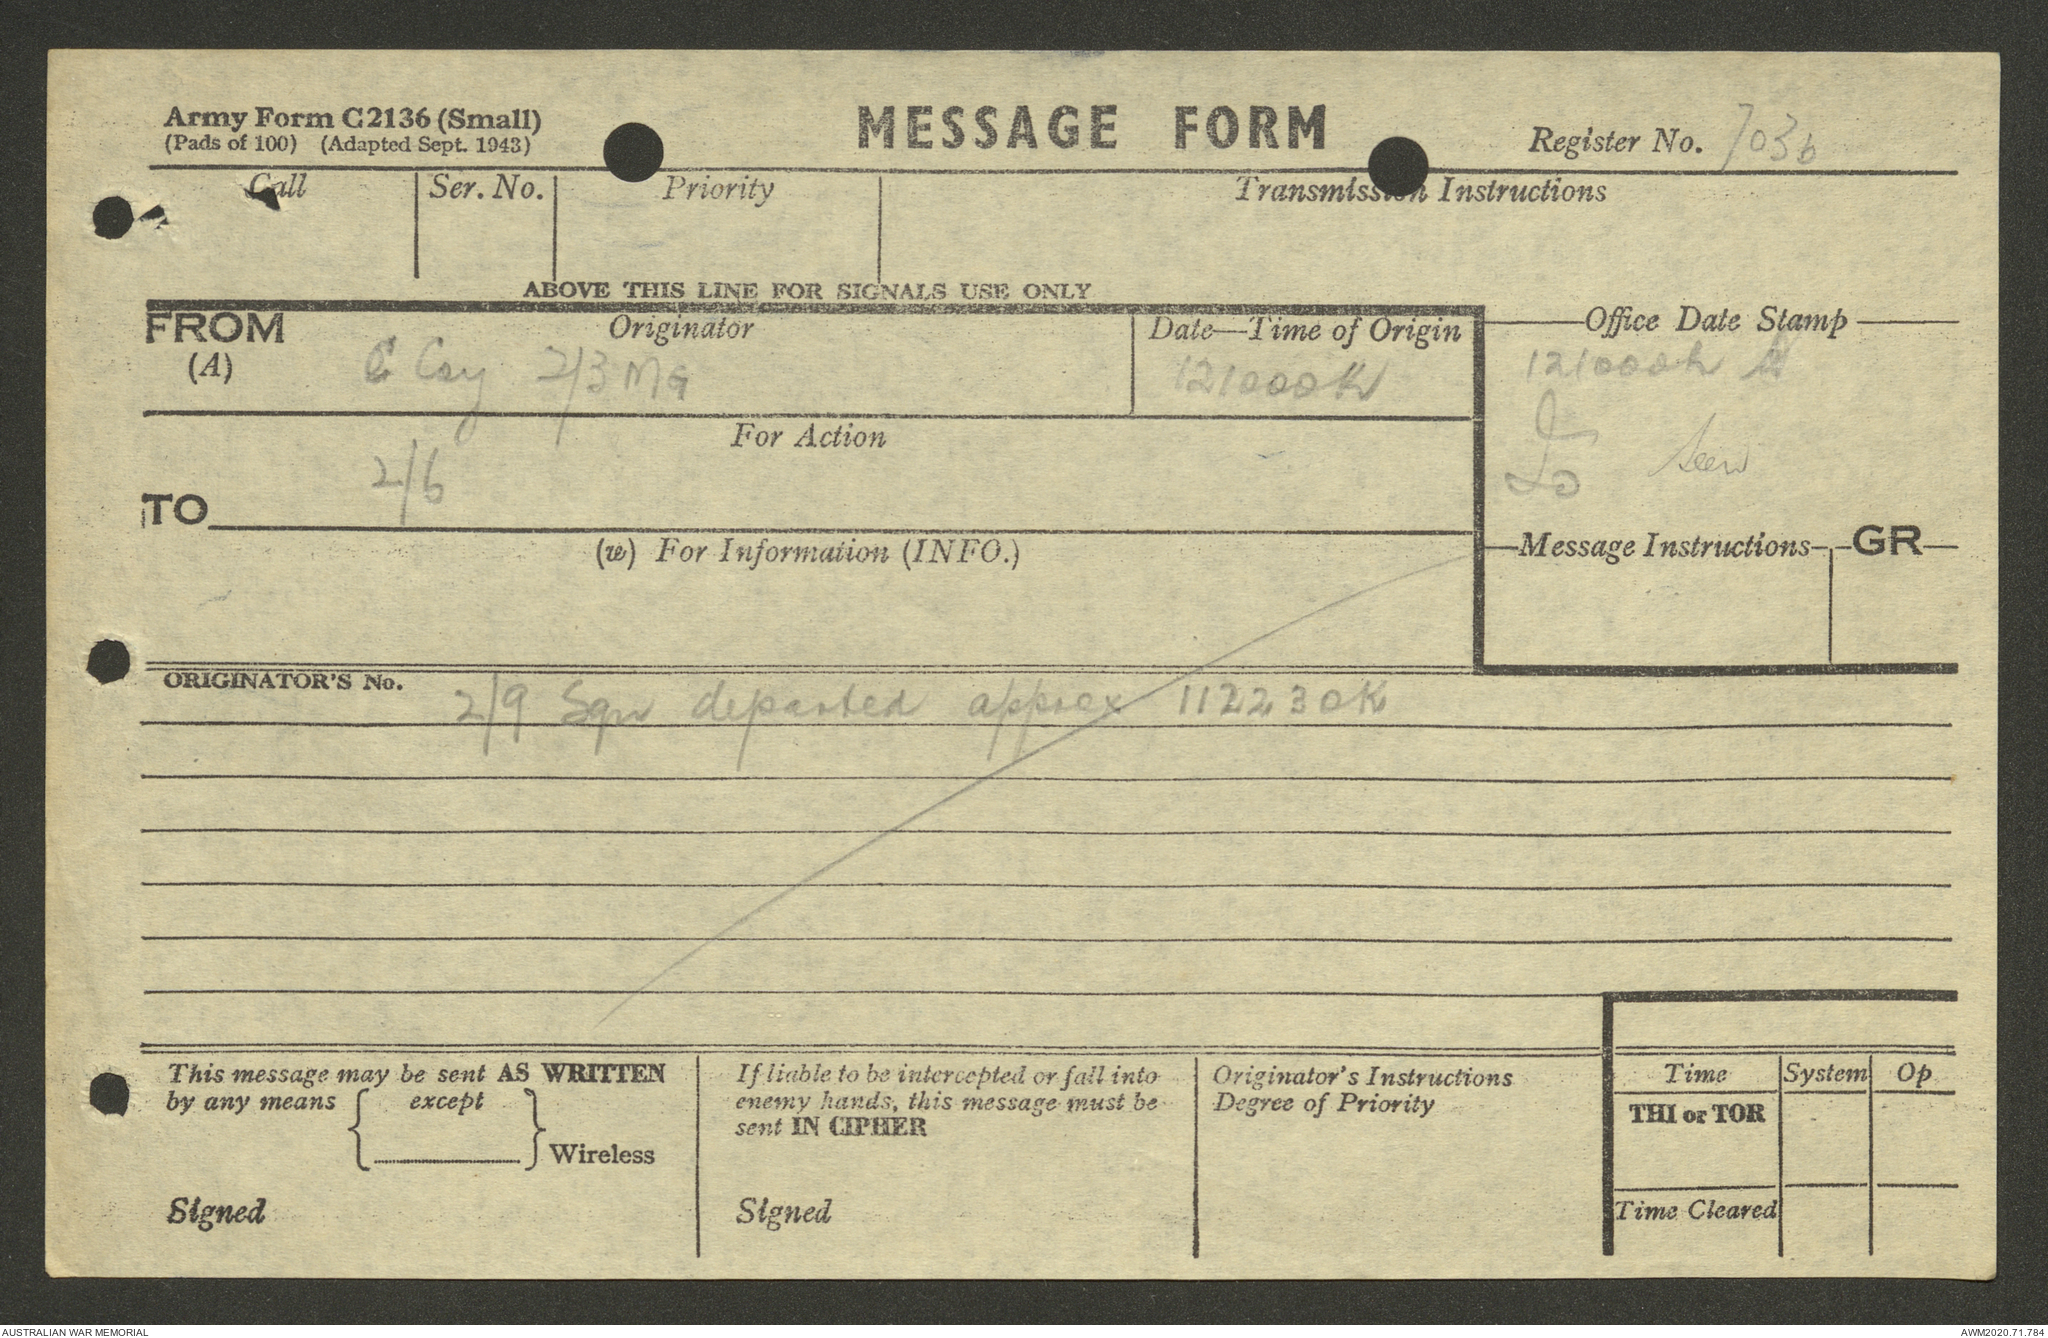 Army Form C2136 (Small)
(Pads of 100) (Adapted Sept. 1943)
MESSAGE FORM
Register No. 7036
Call
Ser. No.
Priority
Transmission Instructions
ABOVE THIS LINE FOR SIGNALS USE ONLY
FROM
(A)
Originator
C Coy 2/3 MG
Date—Time of Origin
121000K
Office Date Stamp
121000K
Seen
For Action
TO
2/6
(w) For Information (INFO.)
Message Instructions
GR
ORIGINATOR'S No.
2/9 Sqn departed approx 112230K
This message may be sent AS WRITTEN
by any means except
Wireless
Signed
If liable to be intercepted or fall into
enemy hands, this message must be
sent IN CIPHER
Signed
Originator's Instructions
Degree of Priority
Time
System
Op
THI or TOR
Time Cleared
AUSTRALIAN WAR MEMORIAL
AWM2020.71.784